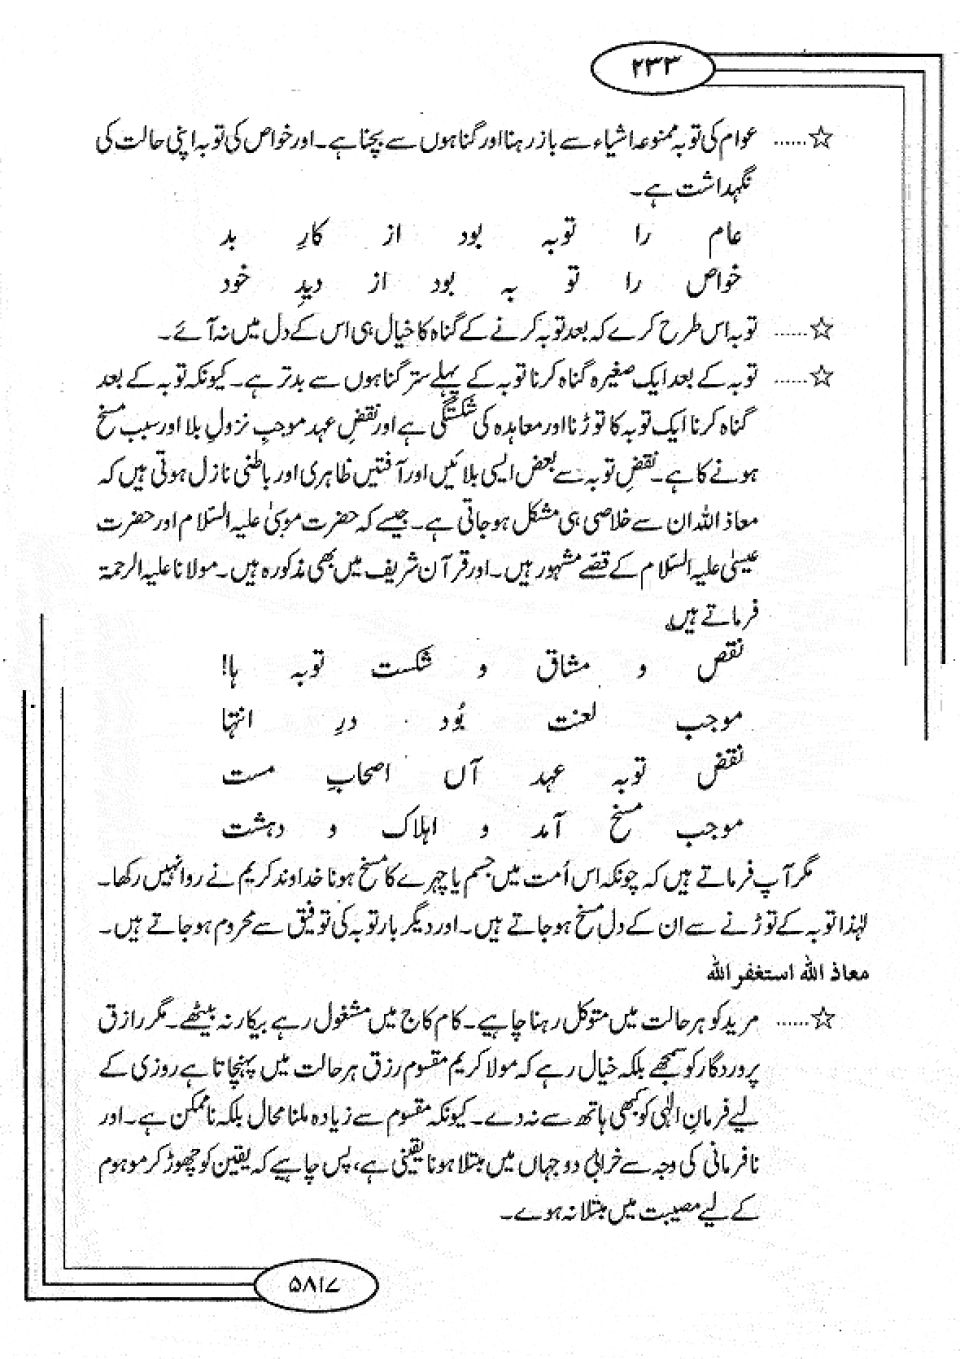 ۲۳۳
☆...... عوام کی توبہ ممنوعہ اشیاء سے باز رہنا اور گناہوں سے بچنا ہے۔ اور خواص کی توبہ اپنی حالت کی
نگہداشت ہے۔
عام را توبہ بود از کارِ بد
خواص را تو بہ بود از دیدِ خود
☆...... توبہ اس طرح کرے کہ بعد توبہ کرنے کے گناہ کا خیال ہی اس کے دل میں نہ آئے۔
☆...... توبہ کے بعد ایک صغیرہ گناہ کرنا توبہ کے پہلے ستر گناہوں سے بدتر ہے۔ کیونکہ توبہ کے بعد
گناہ کرنا ایک توبہ کا توڑنا اور معاہدہ کی شکستگی ہے اور نقضِ عہد موجبِ نزولِ بلا اور سبب مسخ
ہونے کا ہے۔ نقضِ توبہ سے بعض ایسی بلائیں اور آفتیں ظاہری اور باطنی نازل ہوتی ہیں کہ
معاذ اللہ ان سے خلاصی ہی مشکل ہو جاتی ہے۔ جیسے کہ حضرت موسیٰ علیہ السّلام اور حضرت
عیسیٰ علیہ السّلام کے قصّے مشہور ہیں۔ اور قرآن شریف میں بھی مذکورہ ہیں۔ مولانا علیہ الرحمۃ
فرماتے ہیں
نقص و مشاق و شکست توبہ ہا!
موجب لعنت بُود درِ انتہا
نقض توبہ عہد آں اصحابِ مست
موجب مسخ آمد و اہلاک و دہشت
مگر آپ فرماتے ہیں کہ چونکہ اس اُمت میں جسم یا چہرے کا مسخ ہونا خداوند کریم نے روا نہیں رکھا۔
لہٰذا توبہ کے توڑنے سے ان کے دل مسخ ہو جاتے ہیں۔ اور دیگر بار توبہ کی توفیق سے محروم ہو جاتے ہیں۔
معاذ اللہ استغفر اللہ
☆...... مرید کو ہر حالت میں متوکل رہنا چاہیے۔ کام کاج میں مشغول رہے بیکار نہ بیٹھے۔ مگر رازق
پروردگار کو سمجھے بلکہ خیال رہے کہ مولا کریم مقسوم رزق ہر حالت میں پہنچاتا ہے روزی کے
لیے فرمانِ الٰہی کو کبھی ہاتھ سے نہ دے۔ کیونکہ مقسوم سے زیادہ ملنا محال بلکہ ناممکن ہے۔ اور
نافرمانی کی وجہ سے خرابی دو جہاں میں مبتلا ہونا یقینی ہے، پس چاہیے کہ یقین کو چھوڑ کر موہوم
کے لیے مصیبت میں مبتلا نہ ہووے۔
۵۸۱۷